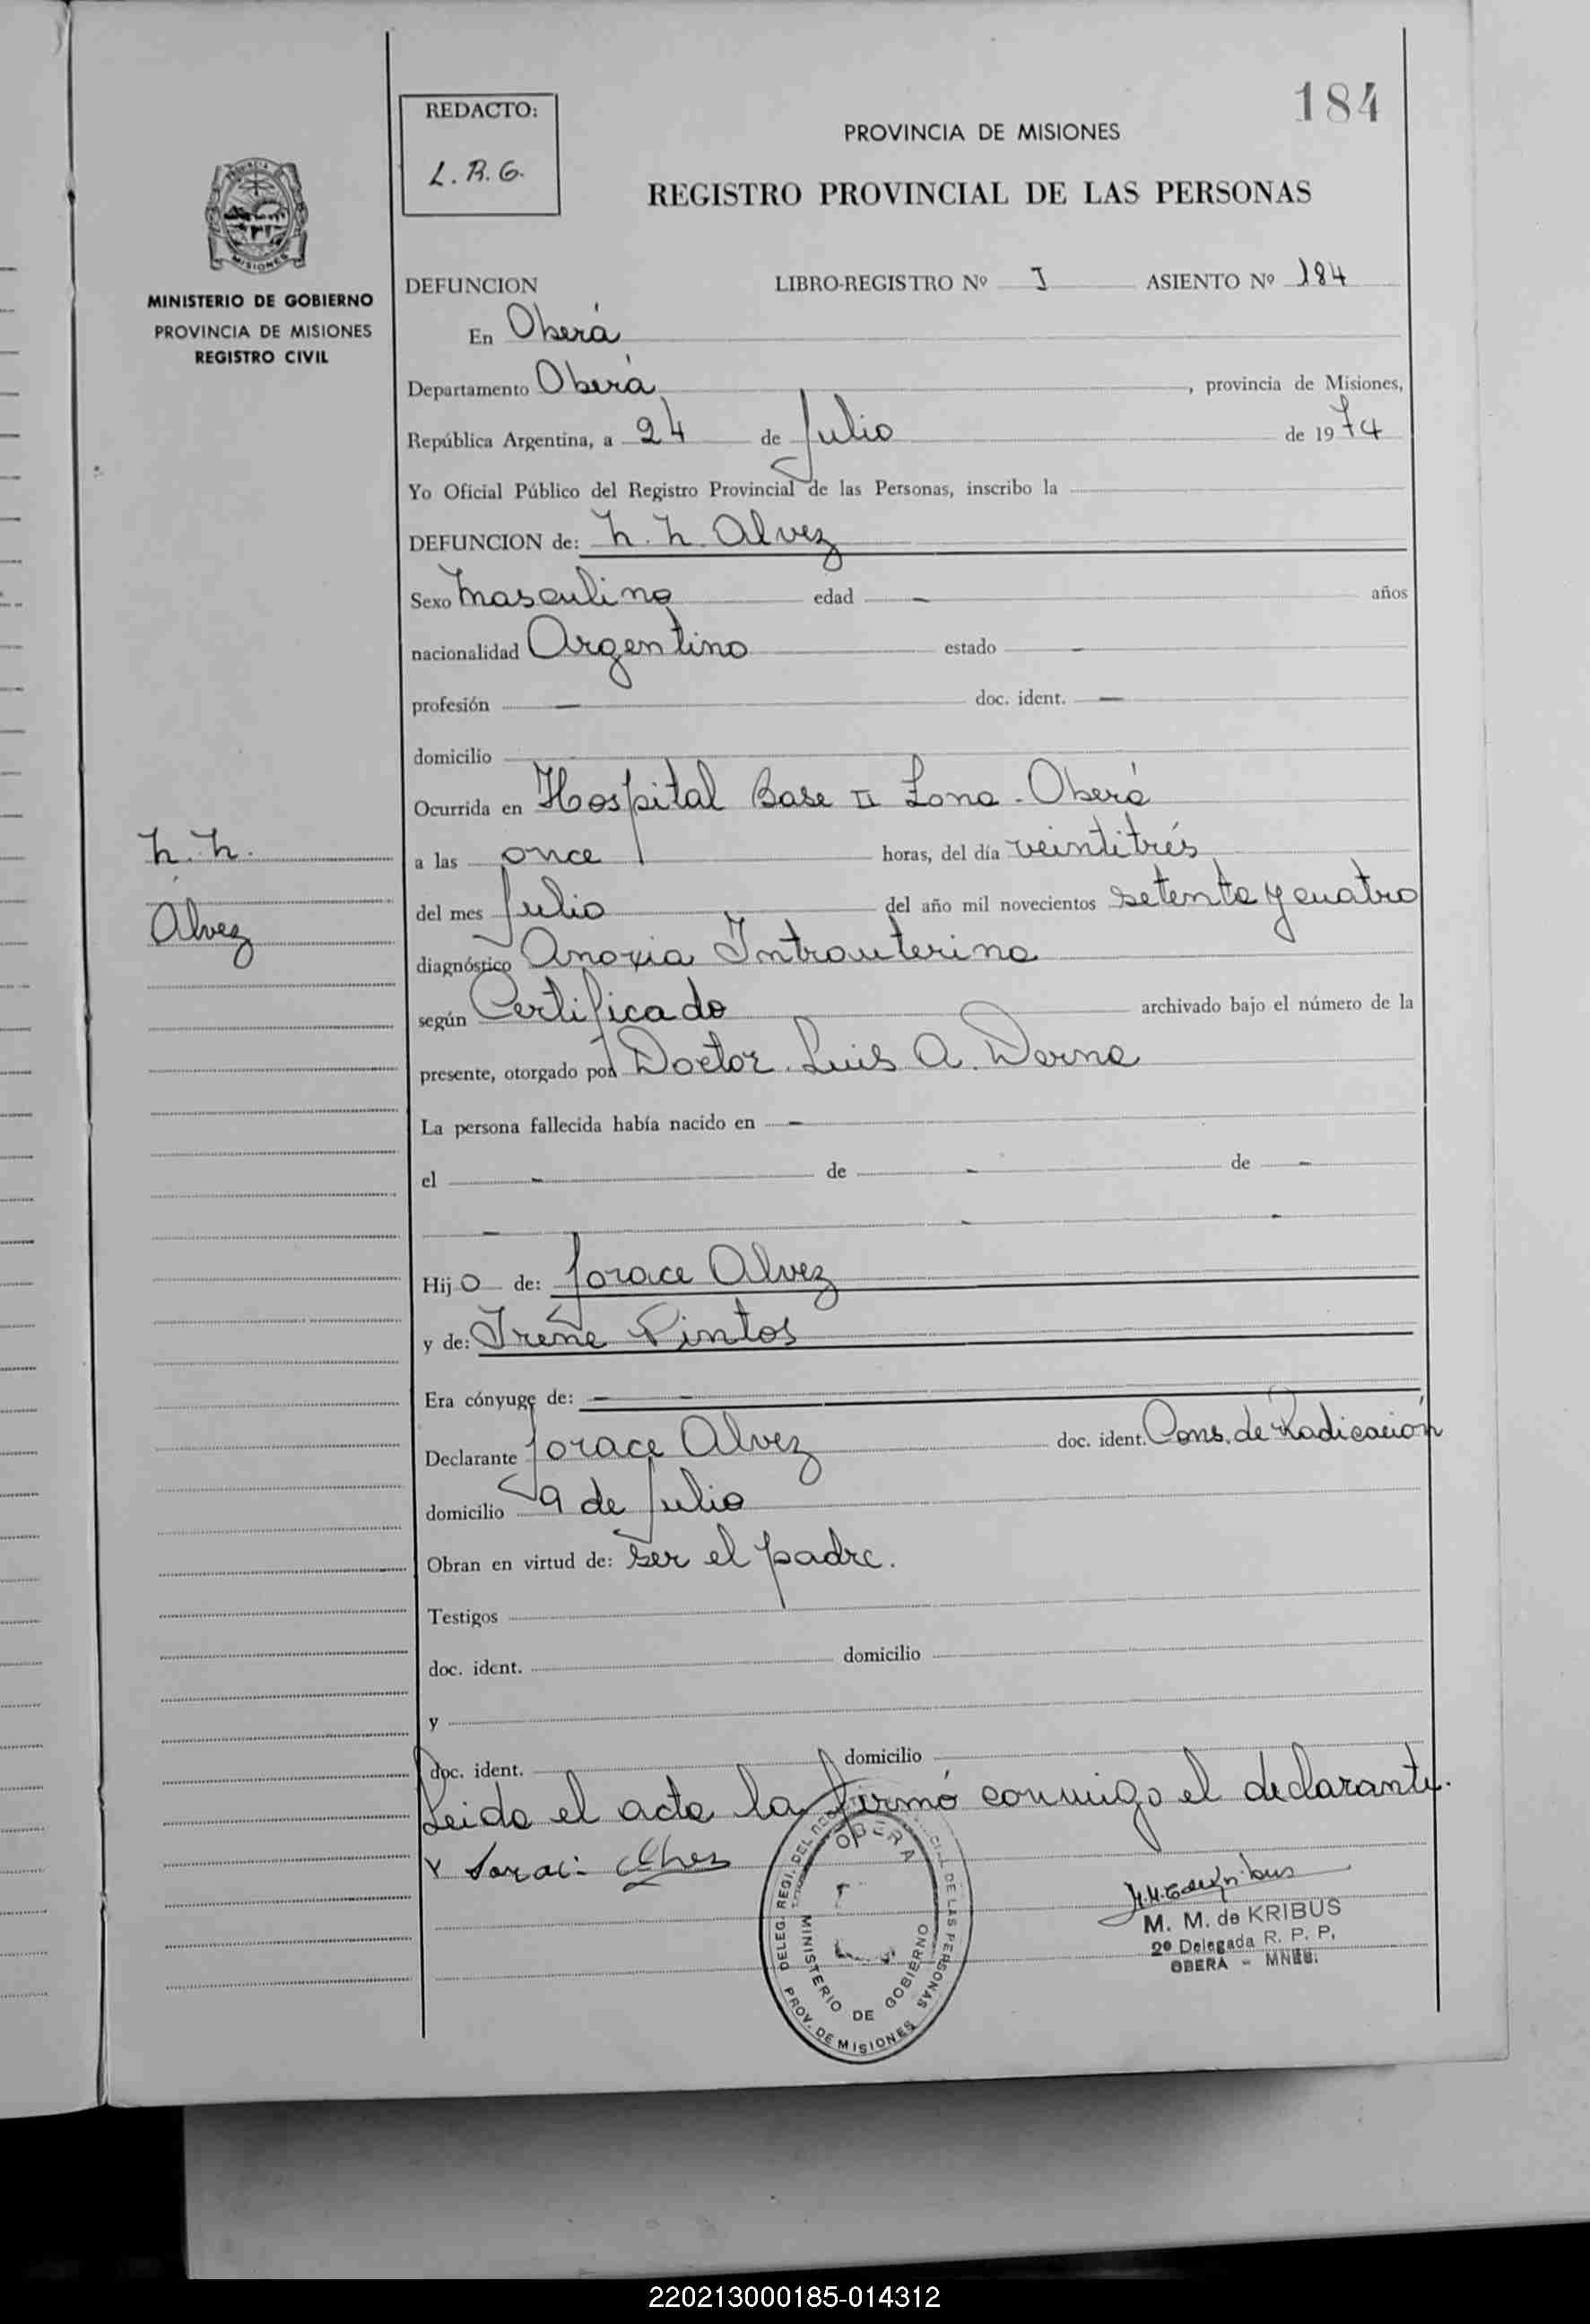 184
REDACTO:
L. R. G.
PROVINCIA DE MISIONES
REGISTRO PROVINCIAL DE LAS PERSONAS
PROVINCIA
MISIONES
MINISTERIO DE GOBIERNO
PROVINCIA DE MISIONES
REGISTRO CIVIL
DEFUNCION LIBRO-REGISTRO Nº I ASIENTO Nº 184
En Oberá
Departamento Oberá, provincia de Misiones,
República Argentina, a 24 de Julio de 1974
Yo Oficial Público del Registro Provincial de las Personas, inscribo la
DEFUNCION de: N. N. Alvez
Sexo Masculino edad - años
nacionalidad Argentino estado -
profesión - doc. ident. -
domicilio
Ocurrida en Hospital Base II Zona - Oberá
N. N.
Alvez
a las once horas, del día veintitrés
del mes Julio del año mil novecientos setenta y cuatro
diagnóstico Anoxia Intrauterina
según Certificado archivado bajo el número de la
presente, otorgado por Doctor Luis A. Derna
La persona fallecida había nacido en -
el - de - de -
- - -
Hijo de: Jorace Alvez
y de: Irene Pintos
Era cónyuge de: - -
Declarante Jorace Alvez doc. ident. Cons. de Radicación
domicilio 9 de Julio
Obran en virtud de: ser el padre.
Testigos
doc. ident. domicilio
y
doc. ident. domicilio
Leida el acta la firmó conmigo el declarante.
x Alvez
DELEG. REGI. DEL PROVINCIAL DE LAS PERSONAS
OBERA
MINISTERIO DE GOBIERNO
PROV. DE MISIONES
M. M. de KRIBUS
2º Delegada R. P. P.
OBERA - MNES.
220213000185-014312